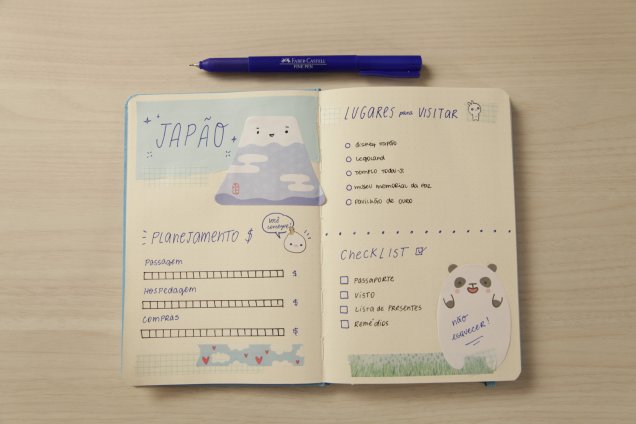 FABER-CASTELL
FINE PEN
JAPÃO
PLANEJAMENTO $
você consegue!
PASSAGEM
$
HOSPEDAGEM
$
COMPRAS
$
LUGARES para VISITAR
DISNEY JAPÃO
LEGOLAND
TEMPLO TODAI-JI
MUSEU MEMORIAL DA PAZ
PAVILHÃO DE OURO
CHECKLIST
PASSAPORTE
VISTO
LISTA DE PRESENTES
REMÉDIOS
não
esquecer!